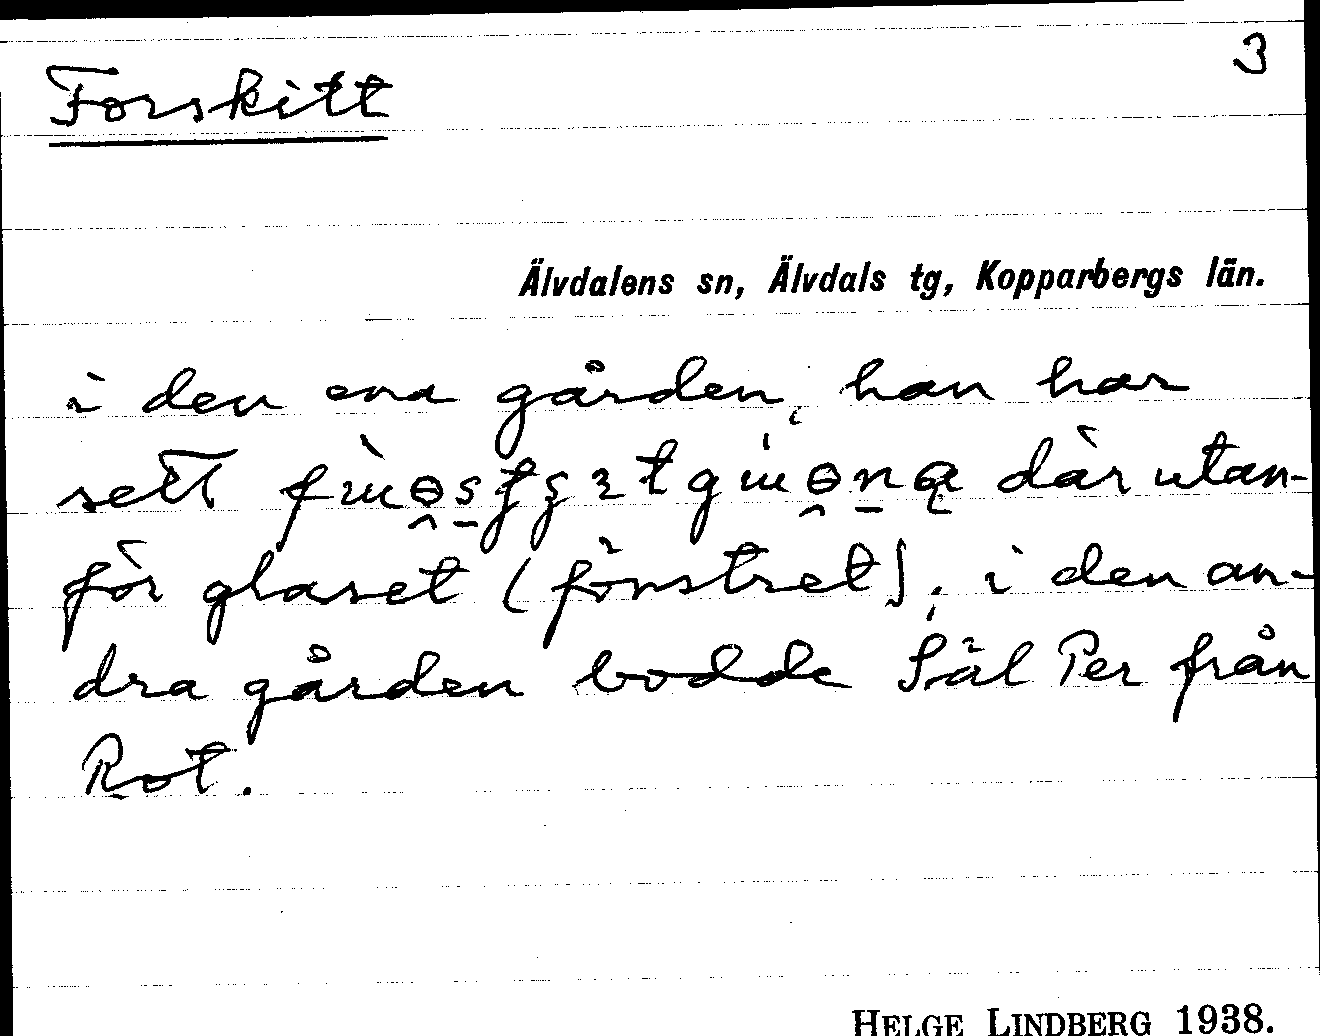 3
Forskitt
Älvdalens sn, Älvdals tg, Kopparbergs län.
i den ena gården, han har
sett där utan-
för glaset (fönstret); i den an-
dra gården bodde Säl Per från
Rot.
HELGE LINDBERG 1938.